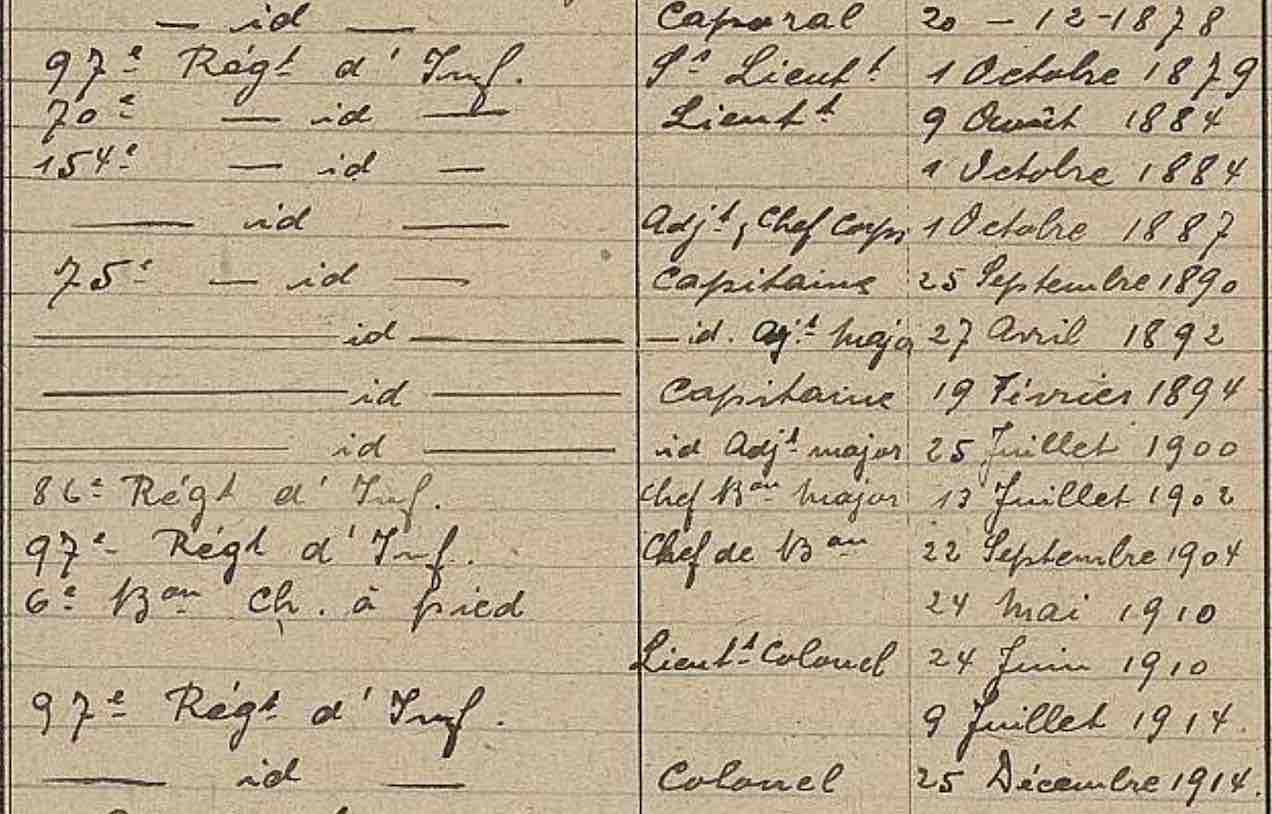 — id — Caporal 20 - 12-1878
97e Régt d'Inf. Ss Lieutt 1 Octobre 1879
70e — id — Lieutt 9 Août 1884
154e — id — 1 Octobre 1884
— id — Adjt, Chef Corps 1 Octobre 1887
75e — id — Capitaine 25 Septembre 1890
— id — — id. Ajt major 27 Avril 1892
— id — Capitaine 19 Février 1894
— id — id Adjt major 25 Juillet 1900
86e Régt d'Inf. Chef Bon major 13 Juillet 1902
97e Régt d'Inf. Chef de Bon 22 Septembre 1904
6e Bon Ch. à pied 24 Mai 1910
Lieutt Colonel 24 Juin 1910
97e Régt d'Inf. 9 Juillet 1914.
— id — Colonel 25 Décembre 1914.